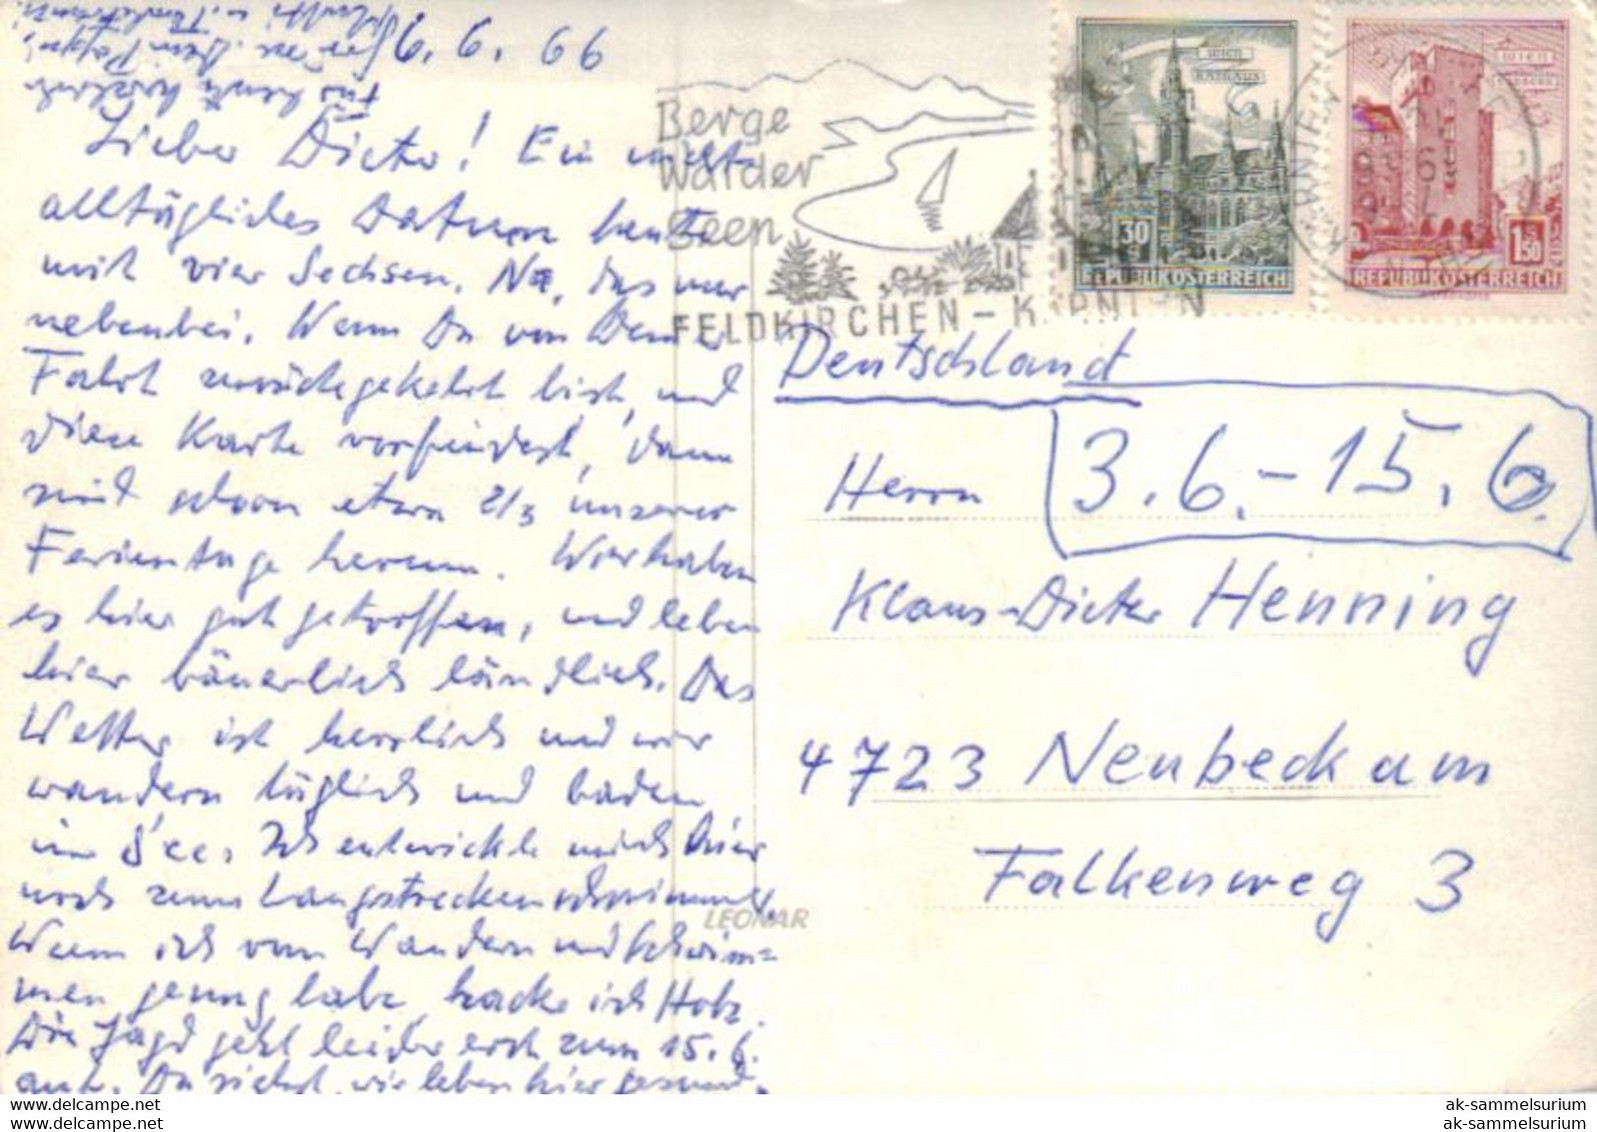 6.6.66
Lieber Dieter! Ein nicht
alltägliches Datum heute
mit vier Sechsen. Na, das nur
nebenbei. Wenn Du von Deiner
Fahrt zurückgekehrt bist, und
diese Karte vorfindest, dann
sind schon etwa 2/3 unserer
Ferientage herum. Wir haben
es hier gut getroffen, und leben
hier bäuerlich ländlich. Das
Wetter ist herrlich und wir
wandern täglich und baden
im See. Ich entwickle mich hier
noch zum Langstreckenschwimmer.
Wenn ich vom Wandern und Schwim=
men genug habe, hacke ich Holz.
Die Jagd geht leider erst zum 15.6.
auf. Du siehst, wir leben hier gesund.
Für heute herzliche
Dein Pappi,
Berge
Wälder
Seen
FELDKIRCHEN - KÄRNTEN
WIEN
RATHAUS
30
REPUBLIK ÖSTERREICH
WIEN
1.50
REPUBLIK ÖSTERREICH
Deutschland
3.6.-15.6.
Herrn
Klaus-Dieter Henning
4723 Neubeckum
Falkenweg 3
LEONAR
ak-sammelsurium
ak-sammelsurium
berge.welt.com
berge.welt.com